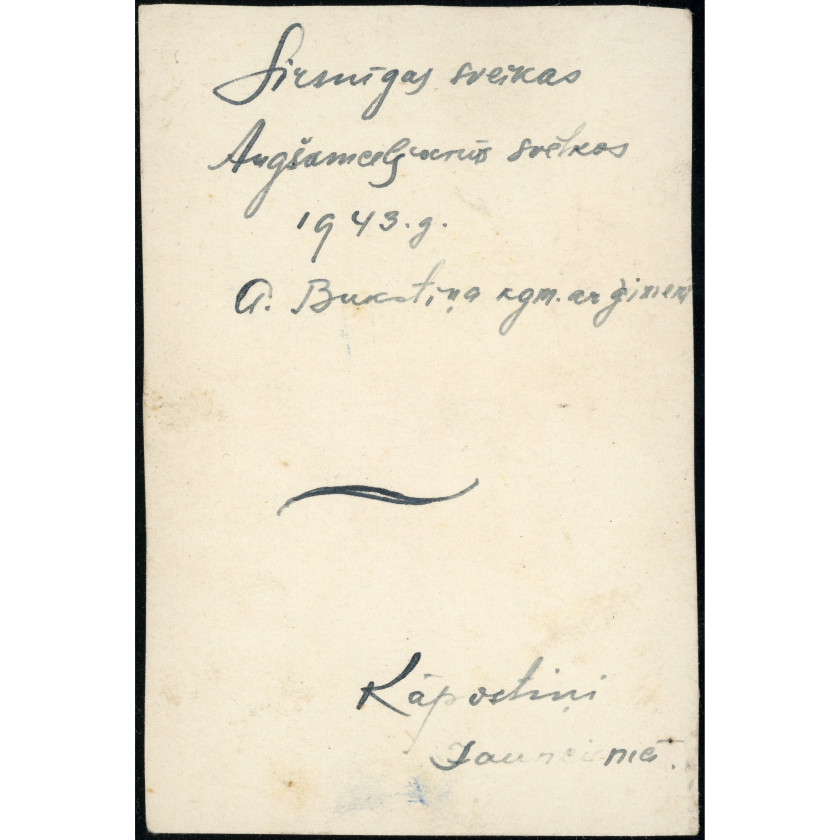 Sirsnīgas sveikas
Augšamceļšanās svētkos
1943. g.
A. Bukstiņa kgm. ar ģimeni
Kāpostiņi
Jaunciemā.